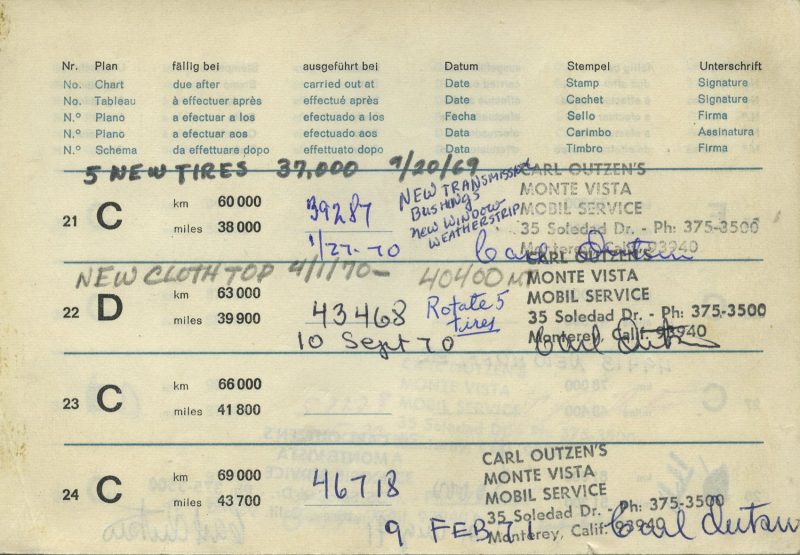 Nr. Plan fällig bei ausgeführt bei Datum Stempel Unterschrift
No. Chart due after carried out at Date Stamp Signature
No. Tableau à effectuer après effectué après Date Cachet Signature
N.º Plano a efectuar a los efectuado a los Fecha Sello Firma
N.º Plano a efectuar aos efectuado aos Data Carimbo Assinatura
N.º Schema da effettuare dopo effettuato dopo Data Timbro Firma
5 NEW TIRES 37,000 9/20/69
21 C km 60 000
miles 38 000
39287
1/27-70
NEW TRANSMISSION
BUSHINGS
NEW WINDOW
WEATHERSTRIP
CARL OUTZEN'S
MONTE VISTA
MOBIL SERVICE
35 Soledad Dr. - Ph: 375-3500
Monterey, Calif. 93940
Carl Outzen
NEW CLOTH TOP 4/1/70- 40400 MI
22 D km 63 000
miles 39 900
43468
10 Sept 70
Rotate 5
tires
CARL OUTZEN'S
MONTE VISTA
MOBIL SERVICE
35 Soledad Dr. - Ph: 375-3500
Monterey, Calif. 93940
Carl Outzen
23 C km 66 000
miles 41 800
24 C km 69 000
miles 43 700
46718
9 FEB 71
CARL OUTZEN'S
MONTE VISTA
MOBIL SERVICE
35 Soledad Dr. - Ph: 375-3500
Monterey, Calif. 93940
Carl Outzen